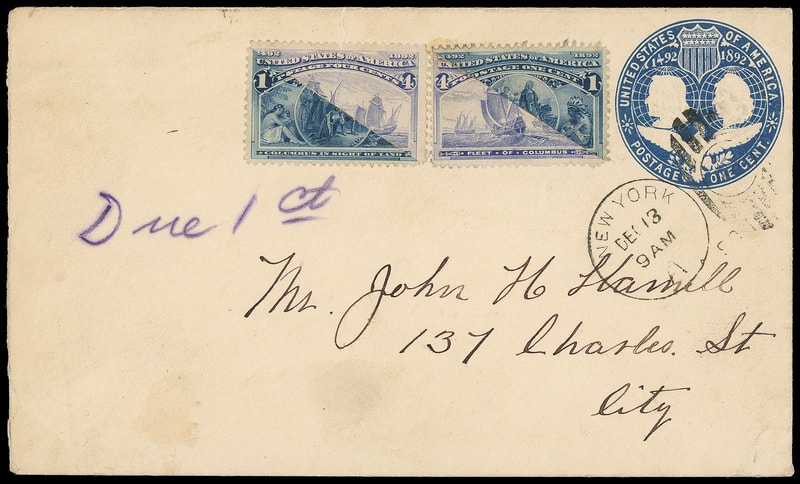 1492 1892
UNITED STATES OF AMERICA
1 POSTAGE FOUR CENTS 4
COLUMBUS IN SIGHT OF LAND
1492 1892
UNITED STATES OF AMERICA
4 POSTAGE ONE CENT 1
FLEET OF COLUMBUS
UNITED STATES OF AMERICA
1492 1892
POSTAGE ONE CENT.
Due 1 ct
NEW YORK
DEC 13
9 AM
Mr. John H Hamill
137 Charles. St
City